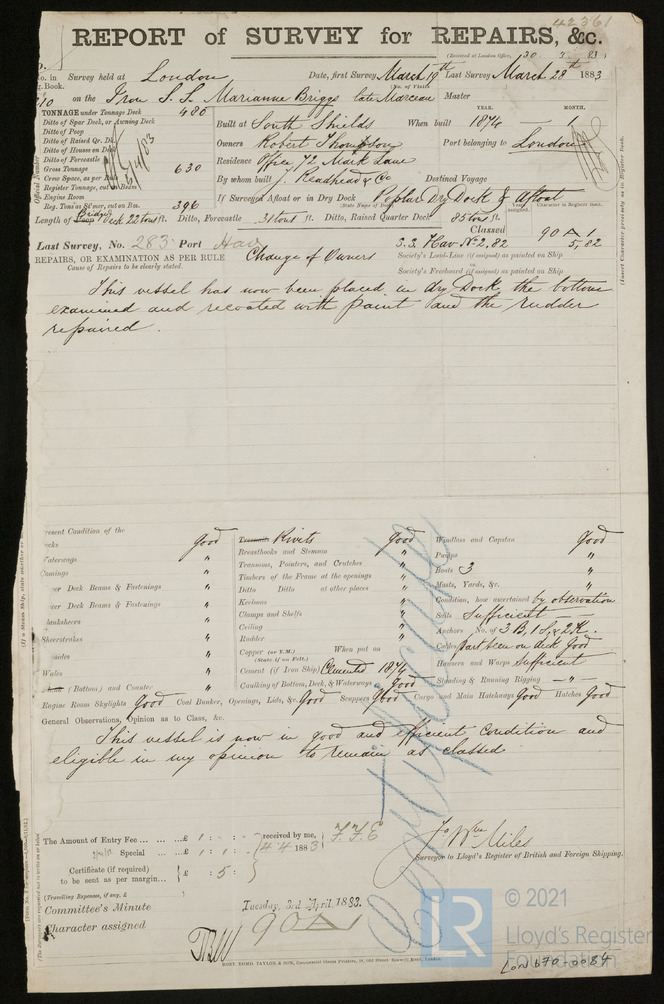 42361
REPORT of SURVEY for REPAIRS, &c.
(Received at London Office, 30 3 83)
No. in Survey held at London Date, first Survey March 19th Last Survey March 28th 1883
Book. (No. of Visits
on the Iron S.S. Marianne Briggs late Marceau Master
TONNAGE under Tonnage Deck 480
Ditto of Spar Deck, or Awning Deck
Ditto of Poop
Ditto of Raised Qr. Dk.
Ditto of Houses on Deck
Ditto of Forecastle
Gross Tonnage 630
Crew Space, as per Rule
Register Tonnage, cut on Beam
Engine Room
Reg. Tons as St'mer, cut on Bm. 396
Official Number
5/4/83
YEAR. MONTH.
Built at South Shields When built 1874 — 1
Owners Robert Thompson Port belonging to London
Residence Office 72 Mark Lane
By whom built J. Readhead & Co Destined Voyage
If Surveyed Afloat or in Dry Dock Poplar Dry Dock & Afloat
(State Name of Dock) Years assigned. Character in Register book.
Length of Bridge Deck 22 tons ft. Ditto, Forecastle 31 tons ft. Ditto, Raised Quarter Deck 85 tons ft.
Classed 90 A 1
Last Survey, No. 283 Port Hav S.S. Hav No 2, 82 5, 82
REPAIRS, OR EXAMINATION AS PER RULE Change of Owners
Cause of Repairs to be clearly stated.
Society's Load-Line (if assigned) as painted on Ship
or
Society's Freeboard (if assigned) as painted on Ship
(Insert Character precisely as in Register Book.
This vessel has now been placed in dry Dock, the bottom
examined and recoated with paint and the rudder
repaired.
Present Condition of the
Decks Good
Waterways "
Comings "
Upper Deck Beams & Fastenings "
Lower Deck Beams & Fastenings "
Planksheers "
Sheerstrakes "
Topsides "
Wales "
(Bottom) and Counter "
Engine Room Skylights Good Coal Bunker, Openings, Lids, &c. Good Scuppers Good Cargo and Main Hatchways Good Hatches Good
Treenails Rivets Good
Breasthooks and Stemson "
Transoms, Pointers, and Crutches "
Timbers of the Frame at the openings "
Ditto Ditto at other places "
Keelsons "
Clamps and Shelfs "
Ceiling "
Rudder "
Copper (or Y.M.) When put on
(State if on Felt.)
Cement (if Iron Ship) Cemented 1874
Caulking of Bottom, Deck, & Waterways Good
Windlass and Capstan Good
Pumps "
Boats 3 "
Masts, Yards, &c. "
Condition, how ascertained by observation
Sails Sufficient
Anchors No. of 3 B, 1 S, & 2 K.
Cables part seen on deck Good
Hawsers and Warps Sufficient
Standing & Running Rigging — " —
General Observations, Opinion as to Class, &c.
This vessel is now in good and efficient condition and
eligible in my opinion to remain as classed
Certificate
The Amount of Entry Fee ... £ 1 : - : - received by me,
Special ... £ 1 : 1 : - 4 4 1883 F.F.E
Certificate (if required)
to be sent as per margin... £ : 5 :
(Travelling Expenses, if any, £
Jo Wm Miles
Surveyor to Lloyd's Register of British and Foreign Shipping.
Committee's Minute Tuesday, 3rd April, 1883.
Character assigned 90 A
WORT, ROMD. TAYLOR & SON, Government Steam Printers, 19, Old Street, Goswell Road, London.
LR
© 2021
Lloyd's Register
Foundation
Lon 670-0084